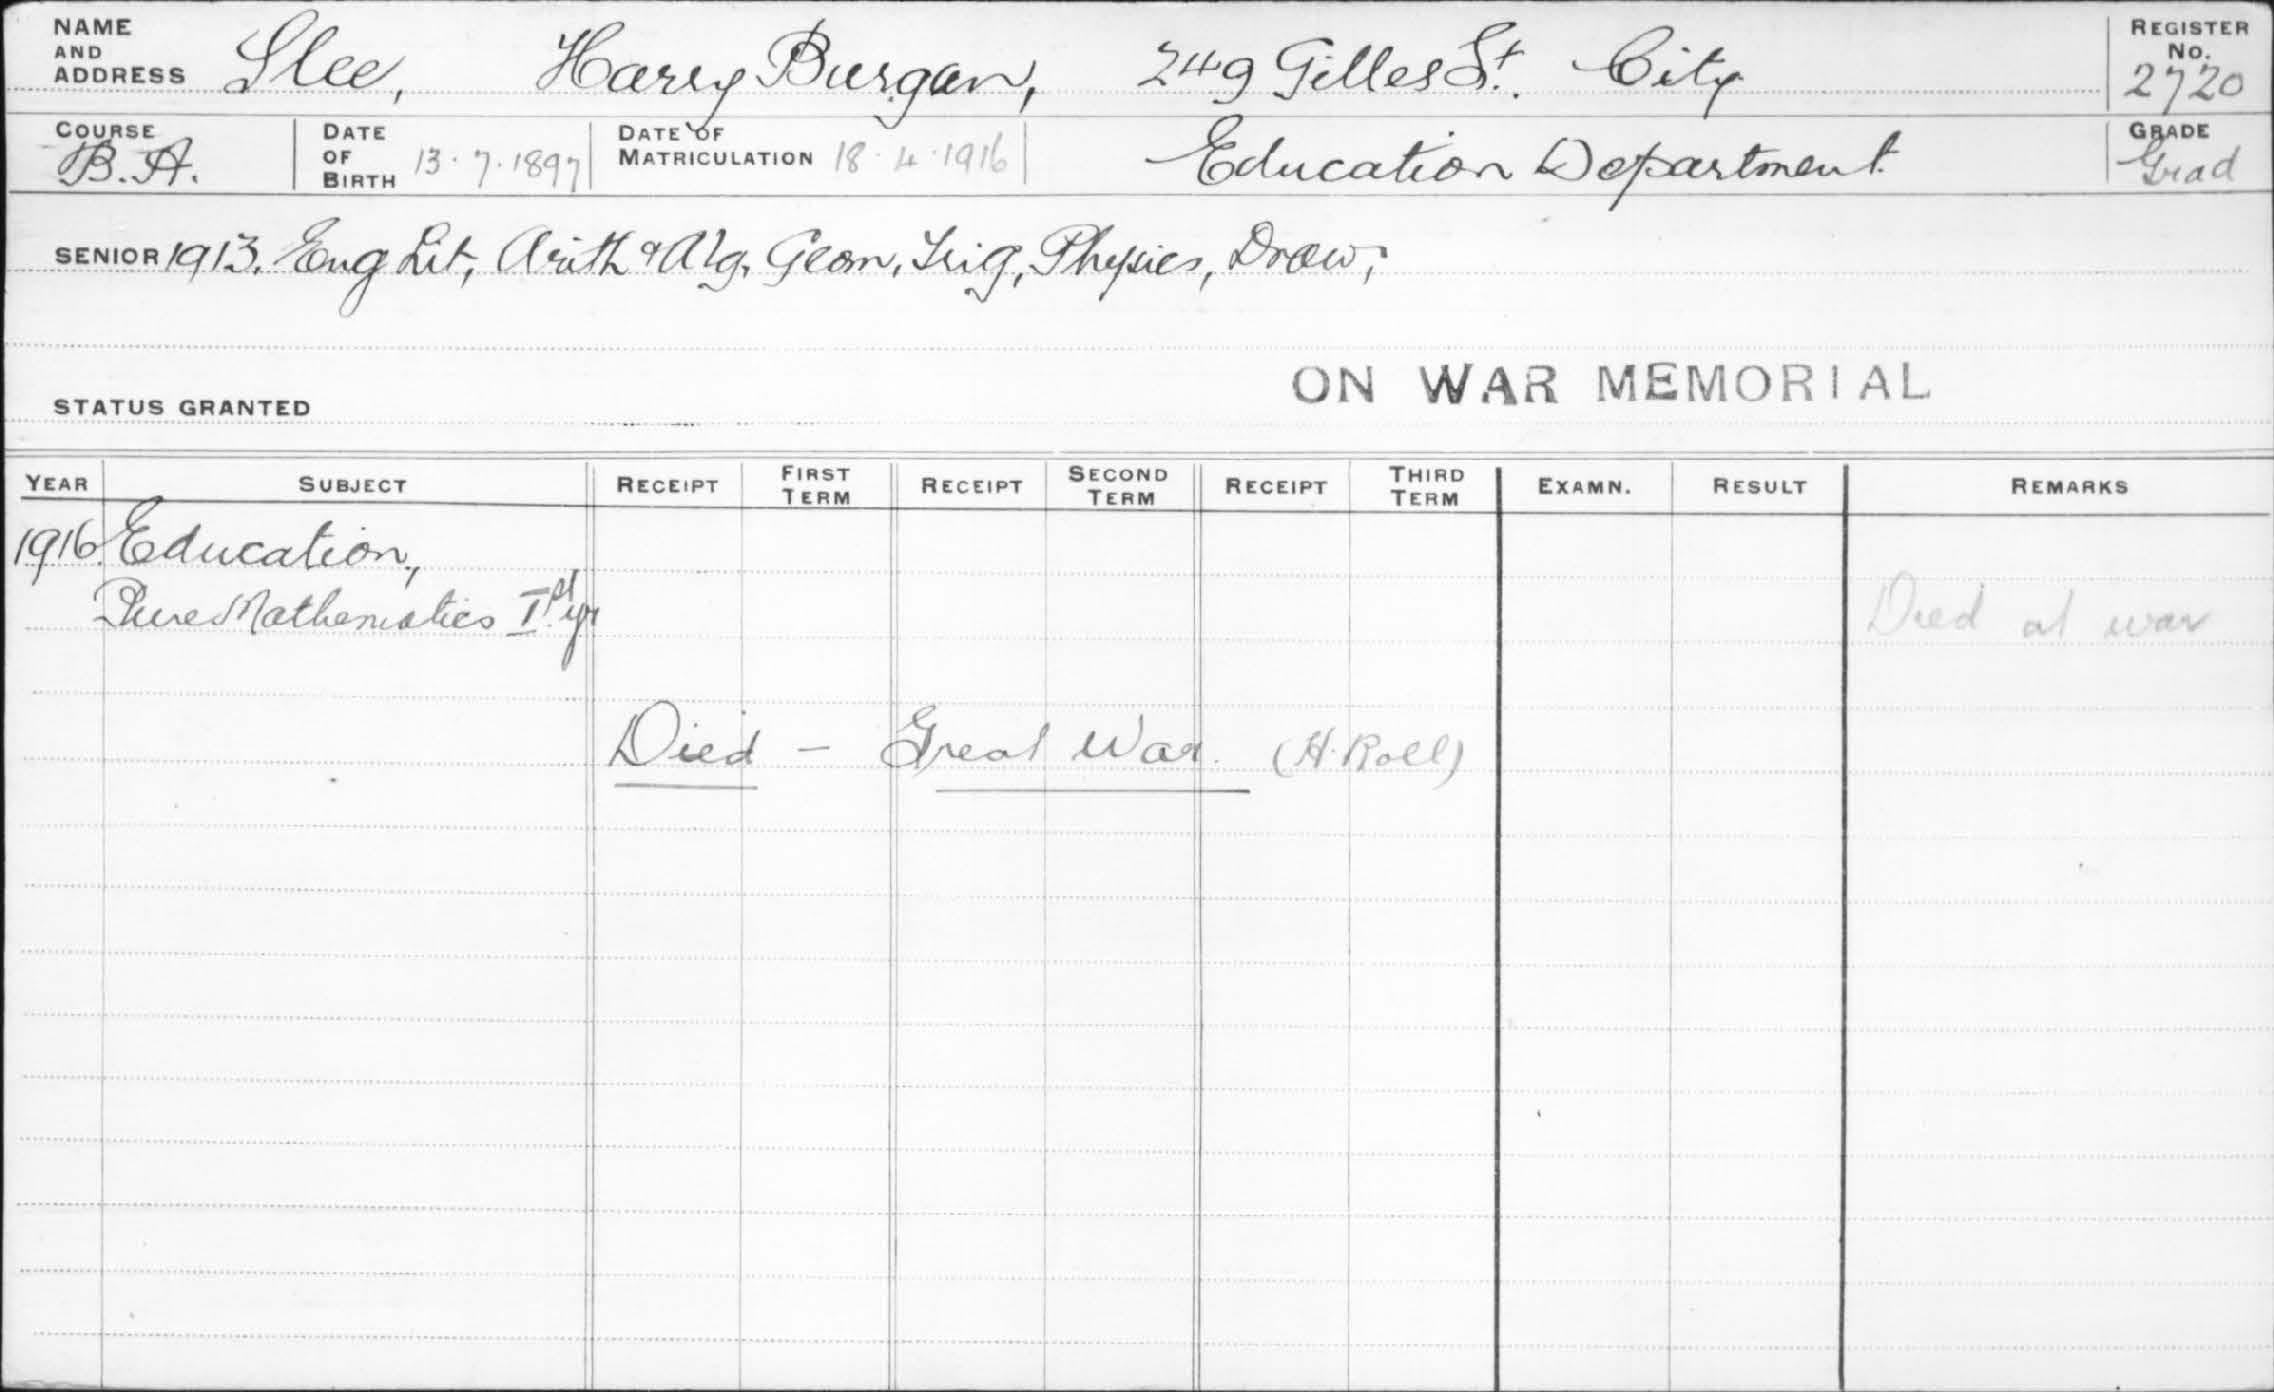 NAME AND ADDRESS Slee, Harry Burgan, 249 Gilles St. City REGISTER No. 2720
COURSE B.A. DATE OF BIRTH 13.7.1897 DATE OF MATRICULATION 18.4.1916 Education Department GRADE Grad
SENIOR 1913. Eng Lit, Arith & Alg, Geom, Trig, Physics, Draw;
ON WAR MEMORIAL
STATUS GRANTED
YEAR SUBJECT RECEIPT FIRST TERM RECEIPT SECOND TERM RECEIPT THIRD TERM EXAMN. RESULT REMARKS
1916 Education,
Pure Mathematics Ist yr Died at war
Died – Great War. (H. Roll)